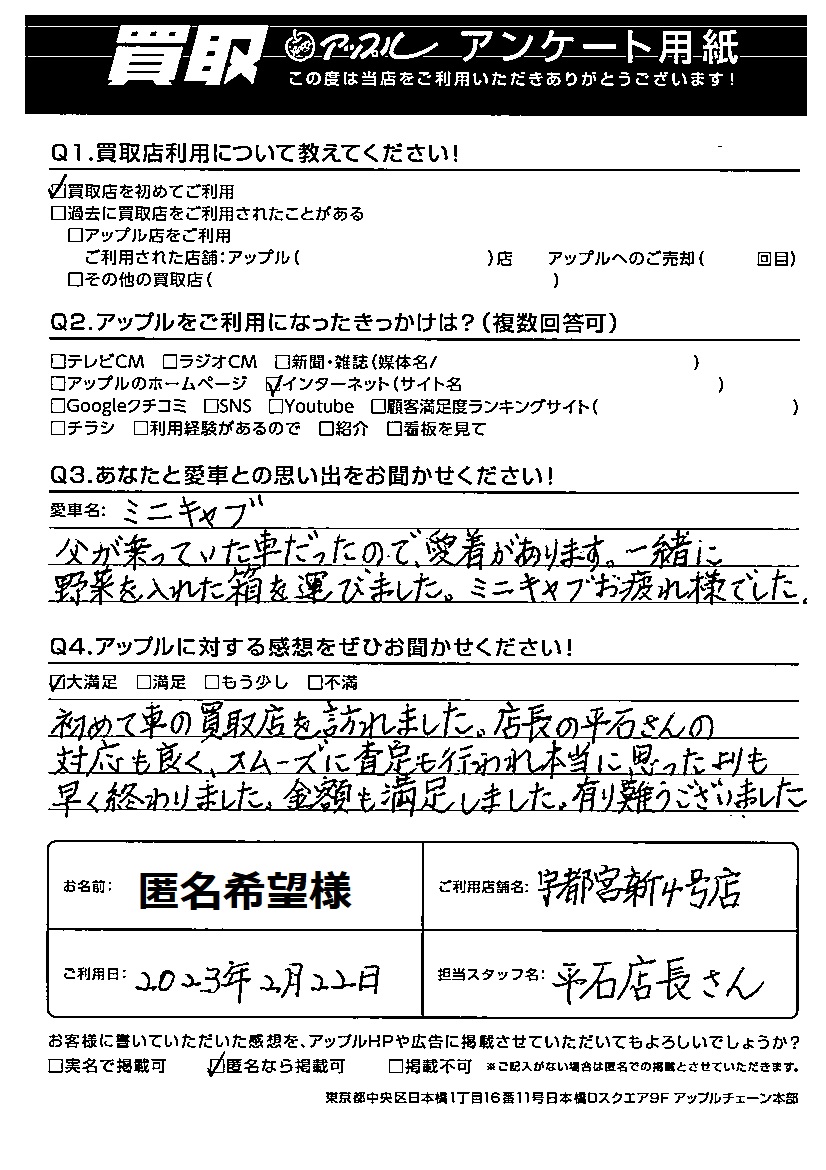 買取 アップル アンケート用紙
この度は当店をご利用いただきありがとうございます！
Q1.買取店利用について教えてください！
☑買取店を初めてご利用
□過去に買取店をご利用されたことがある
□アップル店をご利用
ご利用された店舗：アップル（ ）店 アップルへのご売却（ 回目）
□その他の買取店（ ）
Q2.アップルをご利用になったきっかけは？（複数回答可）
□テレビCM □ラジオCM □新聞・雑誌（媒体名/ ）
□アップルのホームページ ☑インターネット（サイト名 ）
□Googleクチコミ □SNS □Youtube □顧客満足度ランキングサイト（ ）
□チラシ □利用経験があるので □紹介 □看板を見て
Q3.あなたと愛車との思い出をお聞かせください！
愛車名： ミニキャブ
父が乗っていた車だったので、愛着があります。一緒に
野菜を入れた箱を運びました。ミニキャブお疲れ様でした。
Q4.アップルに対する感想をぜひお聞かせください！
☑大満足 □満足 □もう少し □不満
初めて車の買取店を訪れました。店長の平石さんの
対応も良く、スムーズに査定も行われ本当に思ったよりも
早く終わりました。金額も満足しました。有り難うございました
お名前： 匿名希望様 ご利用店舗名： 宇都宮新4号店
ご利用日： 2023年2月22日 担当スタッフ名： 平石店長さん
お客様に書いていただいた感想を、アップルHPや広告に掲載させていただいてもよろしいでしょうか？
□実名で掲載可 ☑匿名なら掲載可 □掲載不可 ※ご記入がない場合は匿名での掲載とさせていただきます。
東京都中央区日本橋1丁目16番11号日本橋Dスクエア9F アップルチェーン本部